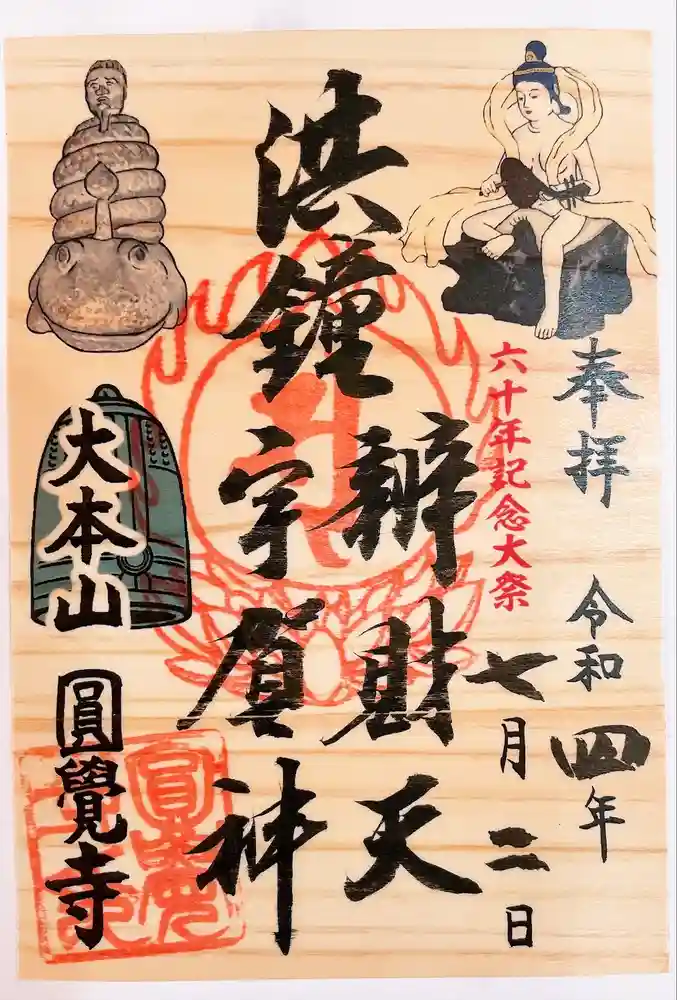 奉拝
令和四年
七月二日
六十年記念大祭
洪鐘
辨財天
宇賀神
大本山
圓覺寺